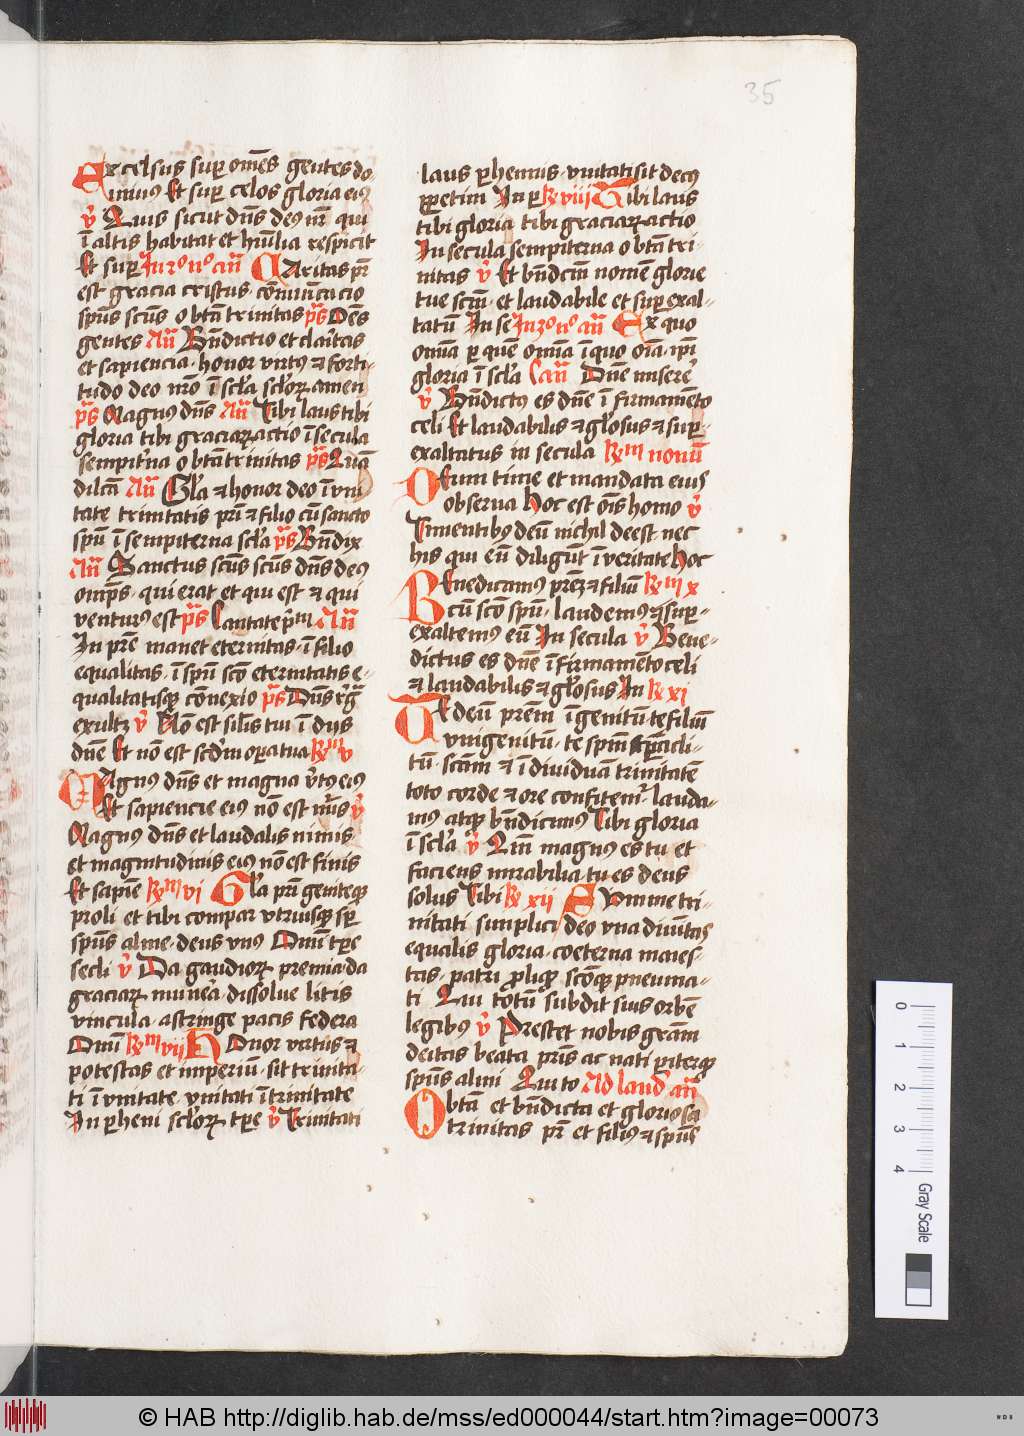 35
Excelsus sup omēs gentes do-
minus Et sup celos gloria eiꝰ
v̾ Quis sicut dn̄s deꝯ nr̄ qui
ī altis habitat et hūilia respicit
Et sup In 2º nº an̄ Caritas pr̄
est gracia cristus cōmunicacio
spūs scūs o btā trinitas ps̄ Oēs
gentes An̄ Bn̄dictio et claritas
et sapiencia honor virtꝯ ⁊ forti-
tudo deo nr̄o ī scl̄a scl̄oꝝ amen
ps̄ Magnꝯ dn̄s An̄ Tibi laus tibi
gloria tibi graciaꝝ actio ī secula
sempit̾na o btā trinitas ps̄ Quā
dilcā An̄ Gl̄a ⁊ honor deo ī vni
tate trinitatis pr̄i ⁊ filio cū sancto
spū ī sempiterna scl̄a ps̄ Bn̄dix
An̄ Sanctus scūs scūs dn̄s deꝯ
omp̄s qui erat et qui est ⁊ qui
venturꝯ est ps̄ Cantate p̾m An̄
In pr̄e manet eternitas ī filio
equalitas ī spū scō eternitatis e-
qualitatisqꝫ cōnexio ps̄ Dn̄s rg̾
exultꝫ v̾ Nō est sil̄is tui ī diis
dn̄e Et nō est scdm opa tua Rm v
Magnus dn̄s et magna v̾tꝯ eiꝯ
Et sapiencie eiꝯ nō est nūs v̾
Magnus dn̄s et laudalis nimis
et magnitudinis eiꝯ nō est finis
Et sapiē Rm vi Gl̄a pr̄i geniteqꝫ
proli et tibi compar vtriusqꝫ sp̄
spūs alme deus vnꝯ Omī tp̄e
secli v̾ Da gaudioꝝ premia da
graciaꝝ mun̾a dissolue litis
vincula astringe pacis federa
Omī Rm vii Honor virtus ⁊
potestas et imperiū sit trinita-
ti ī vnitate vnitati ī trinitate
In phenni scl̄oꝝ tp̄e v̾ Trinitati
laus phennis vnitati sit decꝯ
ppetim In p R viii Tibi laus
tibi gloria tibi graciaꝝ actio
In secula sempiterna o btā tri-
nitas v̾ Et bn̄dcm nomē glorie
tue scm̄ et laudabile et sup exal-
tatū In se In 3º nº an̄ Ex quo
omīa p quē omīa ī quo oīa ipī
gloria ī scl̄a Can̄ Dn̄e misere̾
v̾ Bn̄dictꝯ es dn̄e ī firmamēto
celi Et laudabilis ⁊ gl̄osus ⁊ sup-
exaltatus in secula Rm nonū
Deum time et mandata eius
obserua Hoc est oīs homo v̾
Timentibꝯ deū nichil deest nec
his qui eū diligūt ī veritate hoc
Benedicamꝯ prēꝫ ⁊ filiū Rm x
cū scō spū laudemꝯ ⁊ sup-
exaltemꝯ eū In secula v̾ Bene-
dictus es dn̄e ī firmamēto celi
⁊ laudabilis ⁊ gl̄osus In R xi
Te deū prēm ī genitū te filiū
vnigenitū te spm̄ pacli-
tū scām ⁊ ī diuiduā trinitatē
toto corde ⁊ ore confitem̾ lauda-
mꝯ atqꝫ bn̄dicimꝯ Tibi gloria
ī scl̾a v̾ Qm̄ magnꝯ es tu et
faciens mirabilia tu es deus
solus Tibi R xii Summe tri-
nitati simplici deo vna diuītas
equalis gloria coeterna maies-
tas patri proliqꝫ scōqꝫ pneuma-
ti Qui totū subdit suis orbē
legibꝯ v̾ Prestet nobis grām
deitas beata pris ac nati piterqꝫ
spūs almi Qui to Ad laud an̄
O btā et bn̄dicta et gloriosa
trinitas pr̄ et filiꝯ ⁊ spūs
0 1 2 3 4
Gray Scale
© HAB http://diglib.hab.de/mss/ed000044/start.htm?image=00073